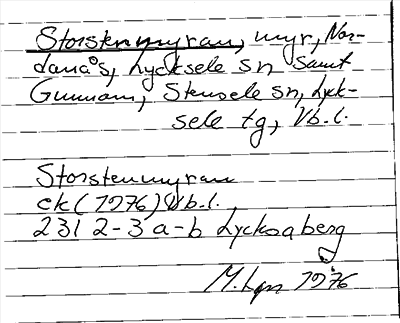 Storstenmyran, myr, Nor-
danås, Lycksele sn samt
Gunnarn, Stensele sn, Lyck-
sele tg, Vb.l.
Storstenmyran
ek (1976) Vb.l.
23I 2-3 a-b Lycksaberg
M.Lgn 1976